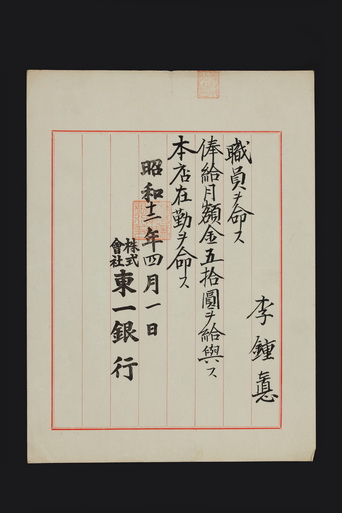 李鍾悳
職員ヲ命ス
俸給月額金五拾圓ヲ給與ス
本店在勤ヲ命ス
昭和十二年四月一日
株式會社東一銀行